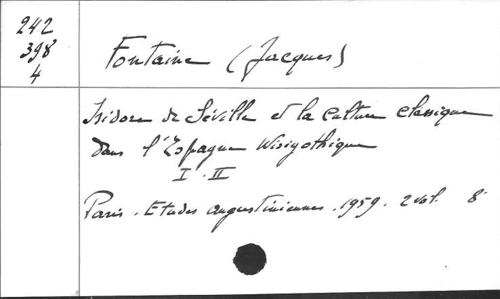 242
398
4
Fontaine (Jacques)
Isidore de Séville et la culture classique
dans l'Espagne Wisigothique
I. II
Paris. Etudes augustiniennes. 1959. 2 vol. 8°